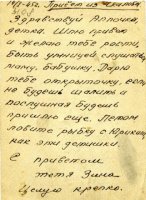 Привет из
Здравствуй Аллочка,
детка. Шлю привет
и желаю тебе расти,
быть умницей, слушать
маму, бабушку. Дарю
тебе открыточку, если
не будешь шалить и
послушная будешь
пришлю еще. Летом
ловите рыбку с Юриком
как эти детишки.
С приветом
тётя Зина
Целую крепко.